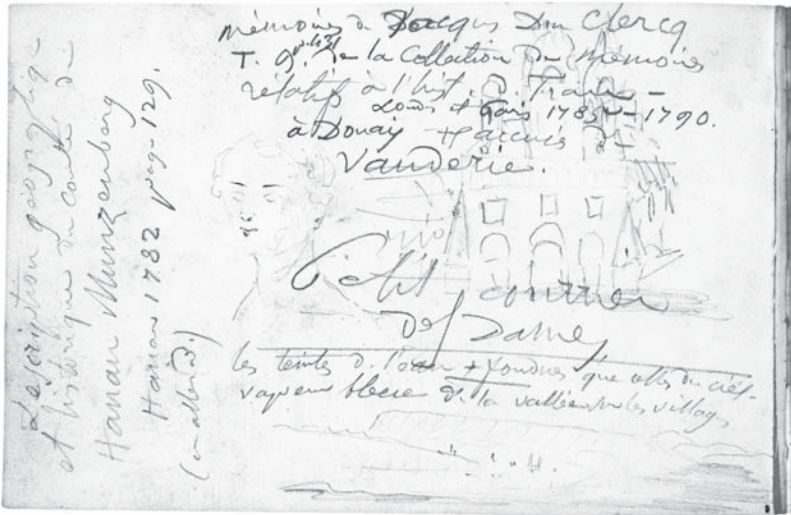 mémoires de Jacques Du Clercq
T. 9. de la Collection de mémoires
relatifs à l'hist. de France –
Londs et Paris 1785 – 1790.
à Douay + accusés de
Vauderie.
Petit courrier
des Dames
les teintes de l'eau + foncées que celles du ciel –
vapeur bleue de la vallée sur les villages
Description géographique
et historique du comté de
Hanau Munzenberg
Hanau 1782 page 129.
(en allemd.)